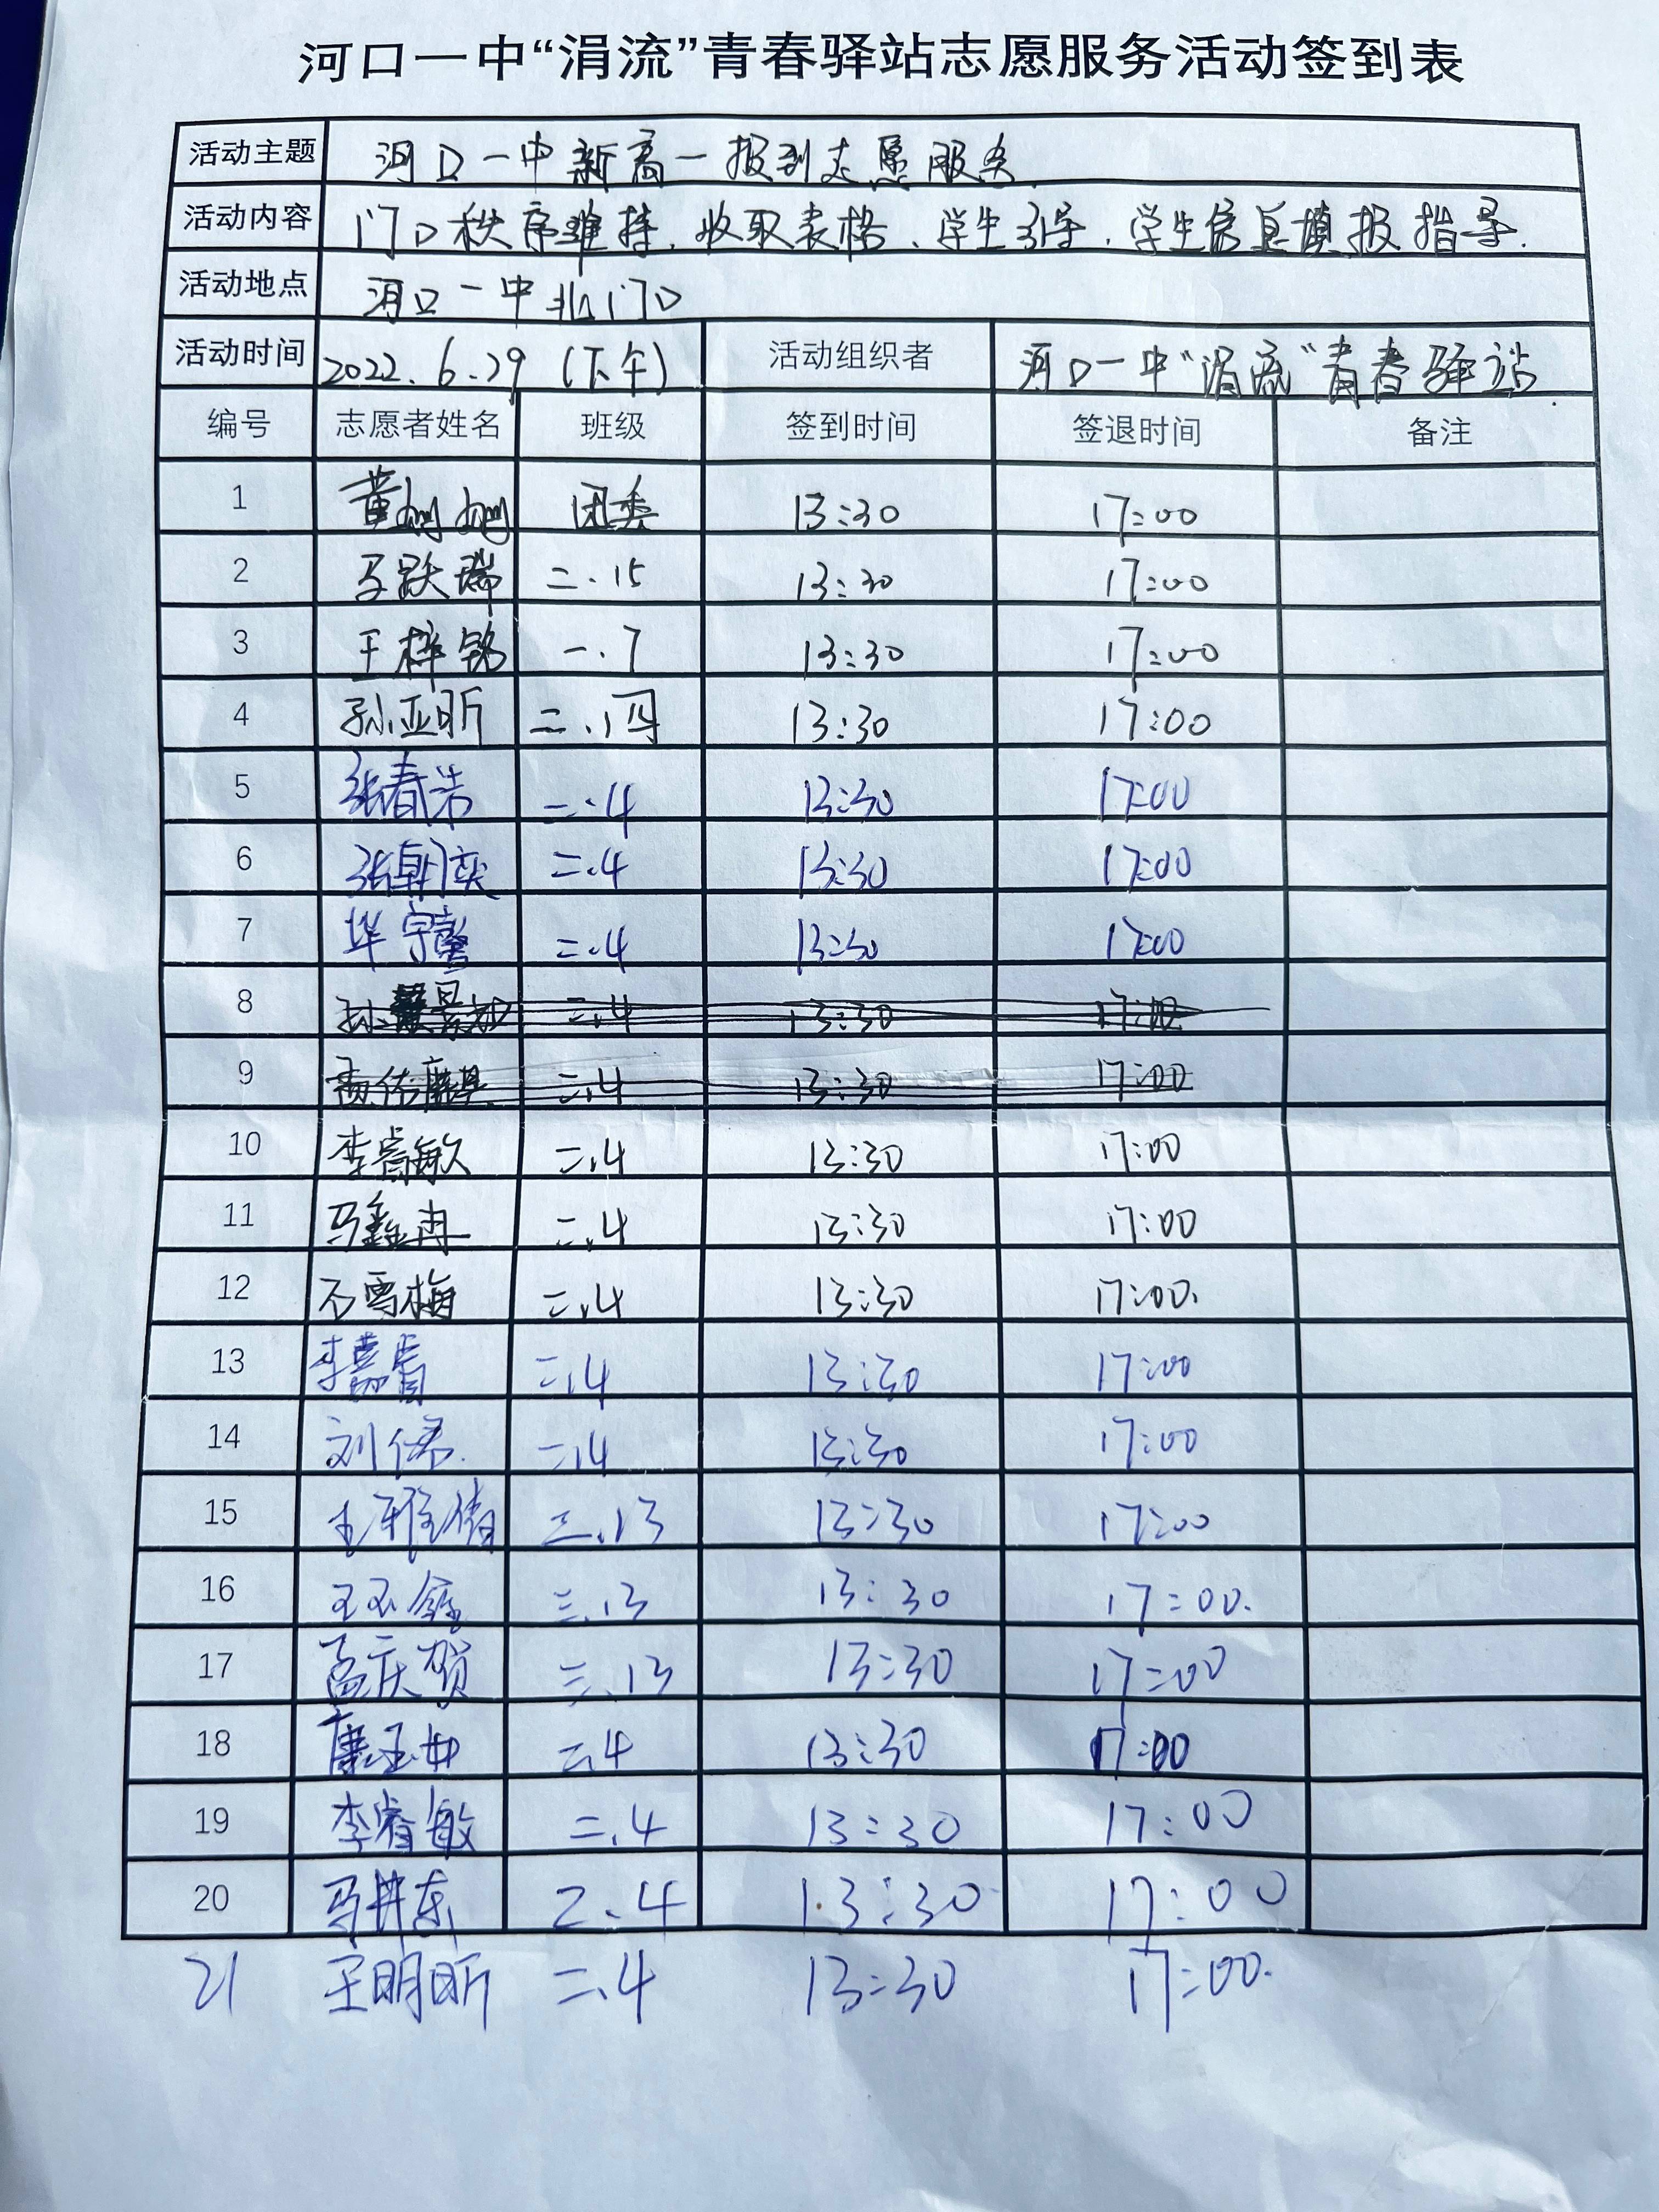 河口一中“涓流”青春驿站志愿服务活动签到表
活动主题 河口一中新高一报到志愿服务
活动内容 门口秩序维持、收取表格、学生引导、学生信息填报指导.
活动地点 河口一中北门口
活动时间 2022.6.29 (下午) 活动组织者 河口一中“涓流”青春驿站
编号 志愿者姓名 班级 签到时间 签退时间 备注
1 黄姗姗 团委 13:30 17:00
2 马跃瑞 二.15 13:30 17:00
3 王梓铭 一.7 13:30 17:00
4 孙亚昕 二.1 13:30 17:00
5 张春浩 二.4 13:30 17:00
6 张朝奕 二.4 13:30 17:00
7 毕宇馨 二.4 13:30 17:00
8 二.4 13:30 17:00
9 二.4 13:30 17:00
10 李睿敏 二.4 13:30 17:00
11 马鑫冉 二.4 13:30 17:00
12 石雪梅 二.4 13:30 17:00.
13 李 二.4 13:30 17:00
14 刘 二.4 13:30 17:00
15 王雅倩 三.13 13:30 17:00
16 王玉鑫 三.13 13:30 17:00.
17 孟庆贺 三.13 13:30 17:00
18 康 二.4 13:30 17:00
19 李睿敏 二.4 13:30 17:00
20 马井东 2.4 13:30 17:00
21 王明昕 二.4 13:30 17:00.